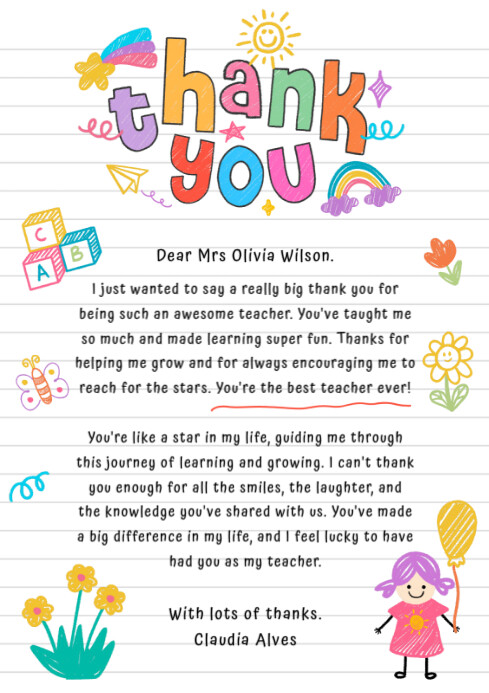 thank
you
C
A B
Dear Mrs Olivia Wilson.
I just wanted to say a really big thank you for
being such an awesome teacher. You've taught me
so much and made learning super fun. Thanks for
helping me grow and for always encouraging me to
reach for the stars. You're the best teacher ever!
You're like a star in my life, guiding me through
this journey of learning and growing. I can't thank
you enough for all the smiles, the laughter, and
the knowledge you've shared with us. You've made
a big difference in my life, and I feel lucky to have
had you as my teacher.
With lots of thanks.
Claudia Alves